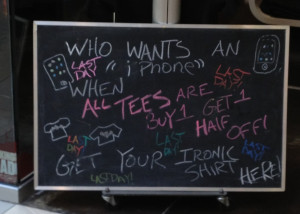 WHO WANTS AN
LAST DAY
"iPhone"
WHEN
LAST DAY
ALL TEES ARE
LAST DAY
BUY 1 GET 1
HALF OFF!
LAST DAY
LAST DAY
GET YOUR IRONIC
LAST DAY
SHIRT HERE!
LAST DAY!